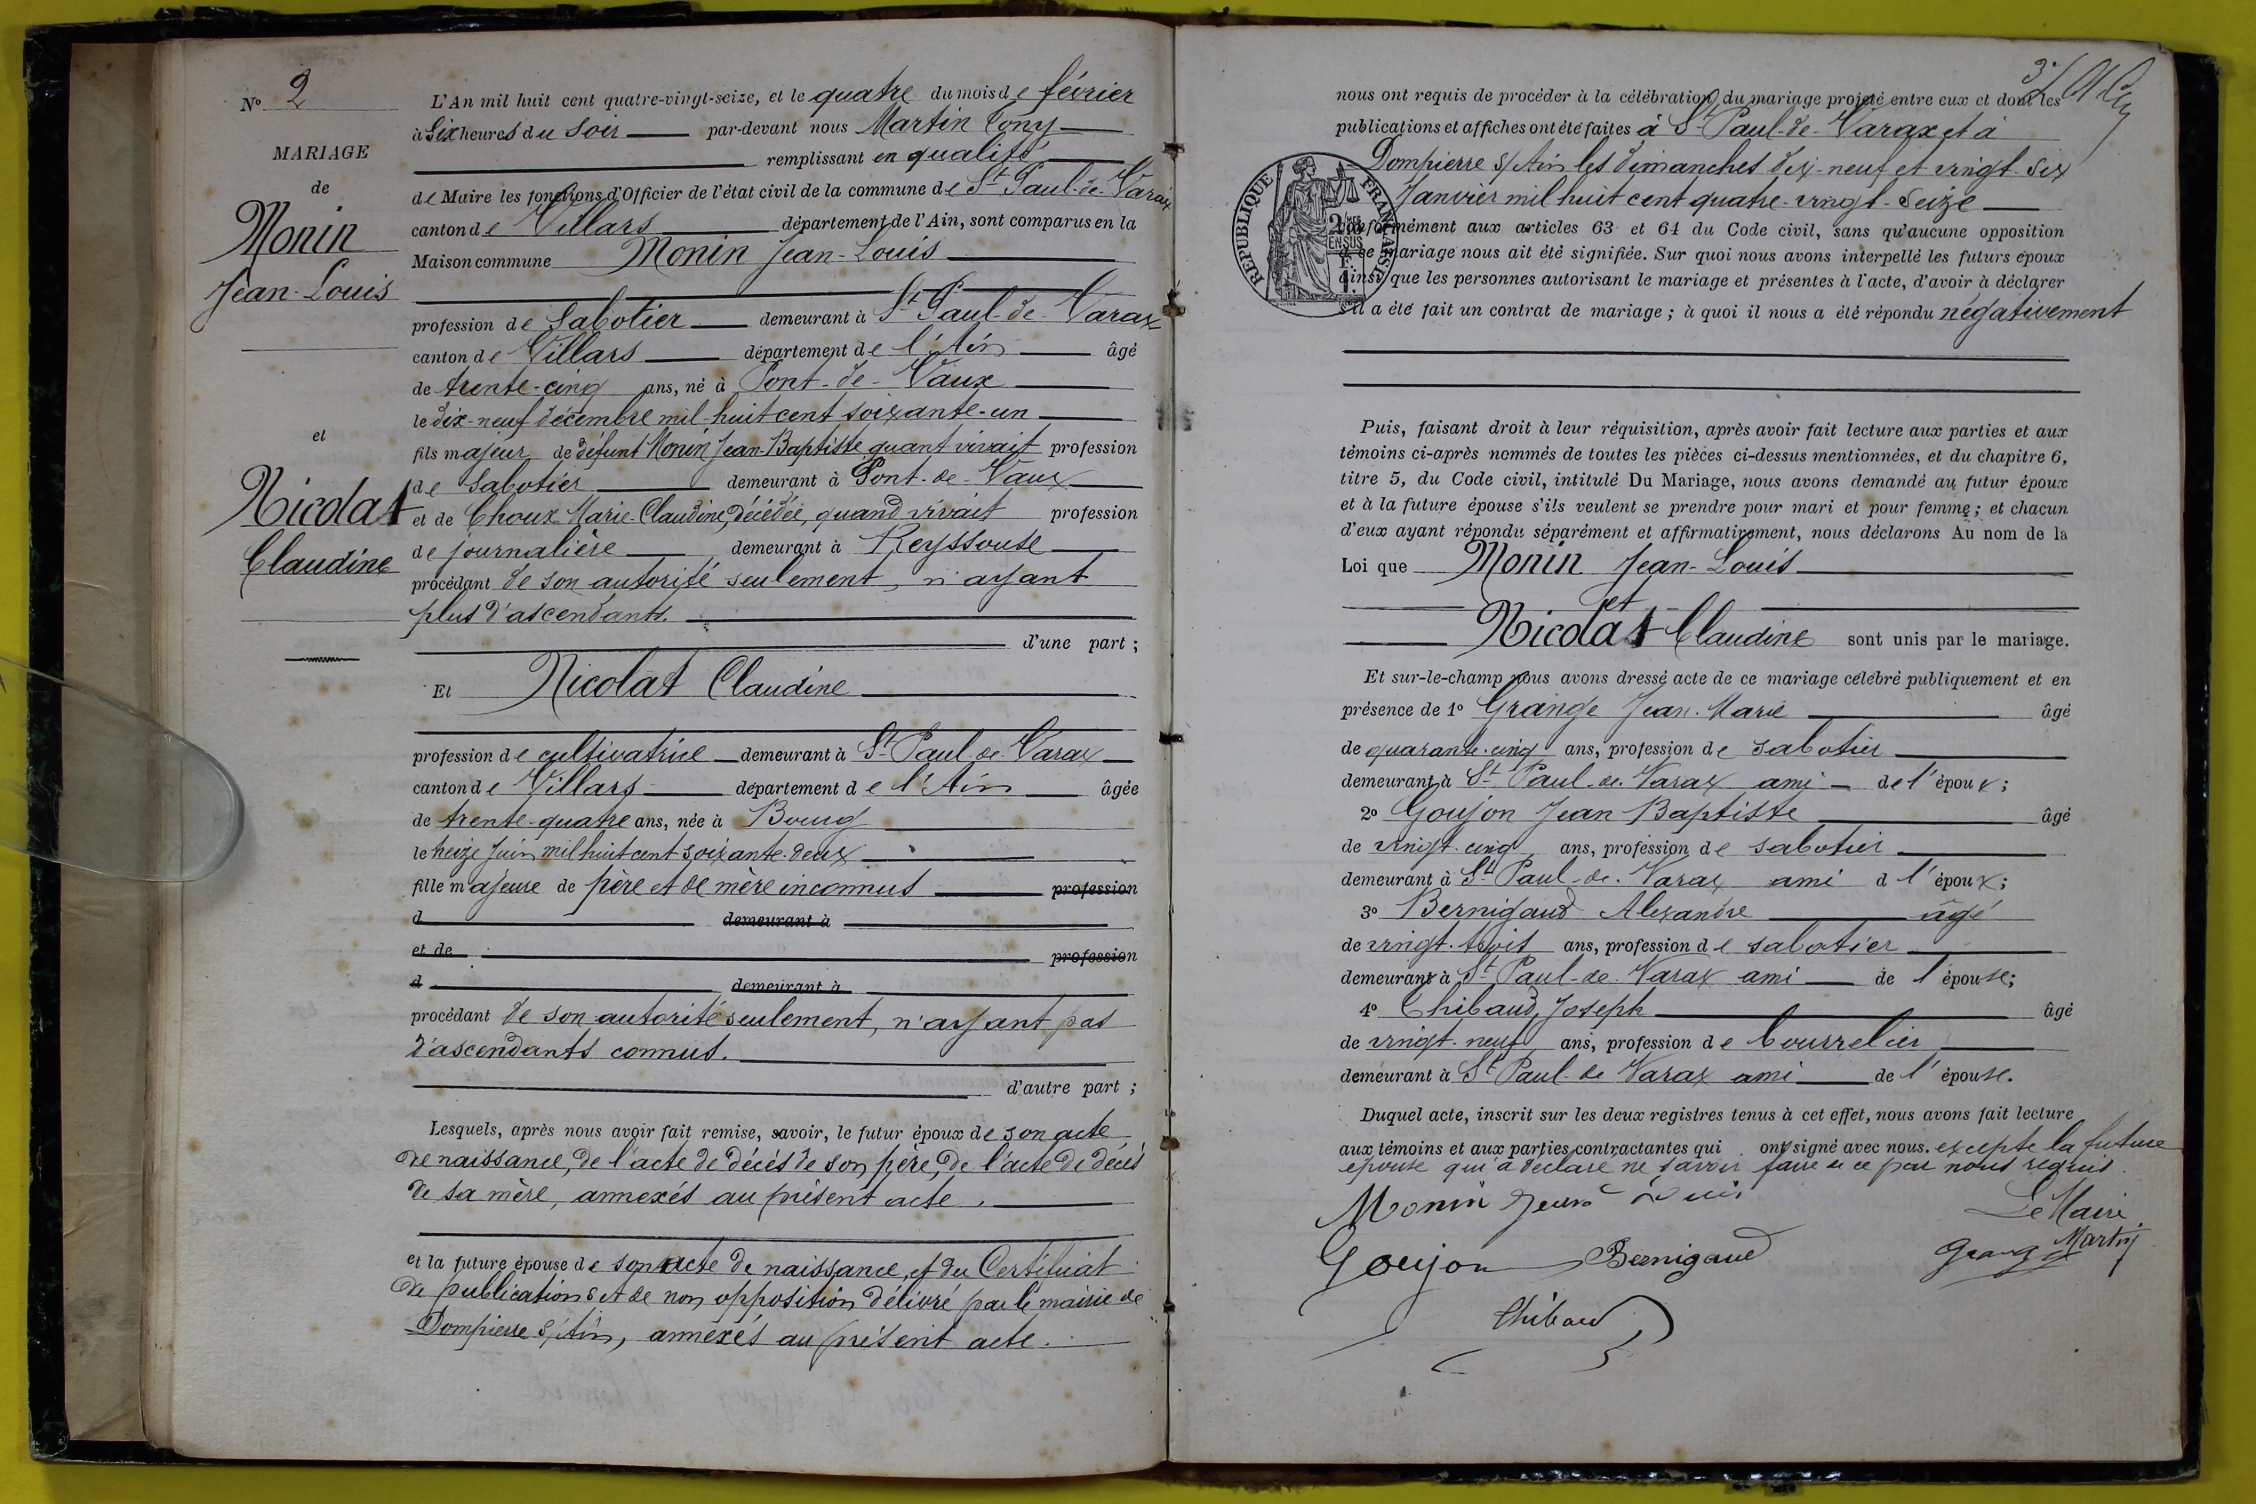 N° 2
MARIAGE
de
Monin
Jean-Louis
et
Nicolat
Claudine
L'An mil huit cent quatre-vingt-seize, et le quatre du mois de février
à Six heures du soir par-devant nous Martin Tony
remplissant en qualité
de Maire les fonctions d'Officier de l'état civil de la commune de St Paul-de-Varax
canton de Villars département de l'Ain, sont comparus en la
Maison commune Monin Jean-Louis
profession de Sabotier demeurant à St Paul-de-Varax
canton de Villars département de l'Ain âgé
de trente-cinq ans, né à Pont-de-Vaux
le dix-neuf décembre mil huit cent soixante-un
fils majeur de défunt Monin Jean-Baptiste quant vivait profession
de Sabotier demeurant à Pont-de-Vaux
et de Choux Marie-Claudine, décédée, quand vivait profession
de journalière demeurant à Reyssouse
procédant de son autorité seulement, n'ayant
plus d'ascendants.
d'une part ;
Et Nicolat Claudine
profession de cultivatrice demeurant à St Paul-de-Varax
canton de Villars département de l'Ain âgée
de trente-quatre ans, née à Bourg
le treize Juin mil huit cent soixante-deux
fille majeure de père et de mère inconnus profession
d demeurant à
et de profession
d demeurant à
procédant de son autorité seulement, n'ayant pas
d'ascendants connus.
d'autre part ;
Lesquels, après nous avoir fait remise, savoir, le futur époux de son acte
de naissance, de l'acte de décès de son père, de l'acte de décès
de sa mère, annexés au présent acte.
et la future épouse de son acte de naissance, et du Certificat
de publications et de non opposition délivré par le mairie de
Dompierre s/Ain, annexés au présent acte.
3e
nous ont requis de procéder à la célébration du mariage projeté entre eux et dont les
publications et affiches ont été faites à St Paul-de-Varax et à
Dompierre s/Ain les dimanches dix-neuf et vingt-six
Janvier mil huit cent quatre-vingt-Seize
RÉPUBLIQUE FRANÇAISE
conformément aux articles 63 et 64 du Code civil, sans qu'aucune opposition
à ce mariage nous ait été signifiée. Sur quoi nous avons interpellé les futurs époux
ainsi que les personnes autorisant le mariage et présentes à l'acte, d'avoir à déclarer
s'il a été fait un contrat de mariage ; à quoi il nous a été répondu négativement
Puis, faisant droit à leur réquisition, après avoir fait lecture aux parties et aux
témoins ci-après nommés de toutes les pièces ci-dessus mentionnées, et du chapitre 6,
titre 5, du Code civil, intitulé Du Mariage, nous avons demandé au futur époux
et à la future épouse s'ils veulent se prendre pour mari et pour femme ; et chacun
d'eux ayant répondu séparément et affirmativement, nous déclarons Au nom de la
Loi que Monin Jean-Louis
et
Nicolat Claudine sont unis par le mariage.
Et sur-le-champ nous avons dressé acte de ce mariage célébré publiquement et en
présence de 1° Grange Jean-Marie âgé
de quarante-cinq ans, profession de sabotier
demeurant à St Paul-de-Varax ami de l'époux ;
2° Goujon Jean-Baptiste âgé
de vingt-cinq ans, profession de sabotier
demeurant à St Paul-de-Varax ami d l'époux ;
3° Bernigaud Alexandre âgé
de vingt-trois ans, profession de sabotier
demeurant à St Paul-de-Varax ami de l'épouse ;
4° Thibaud Joseph âgé
de vingt-neuf ans, profession de bourrelier
demeurant à St Paul-de Varax ami de l'épouse.
Duquel acte, inscrit sur les deux registres tenus à cet effet, nous avons fait lecture
aux témoins et aux parties contractantes qui ont signé avec nous. excepte la future
epouse qui a déclaré ne savoir faire de ce par nous requis.
Monin Jean Louis
Le Maire
Martin
Goujon Bernigaud Grange
Thibaud